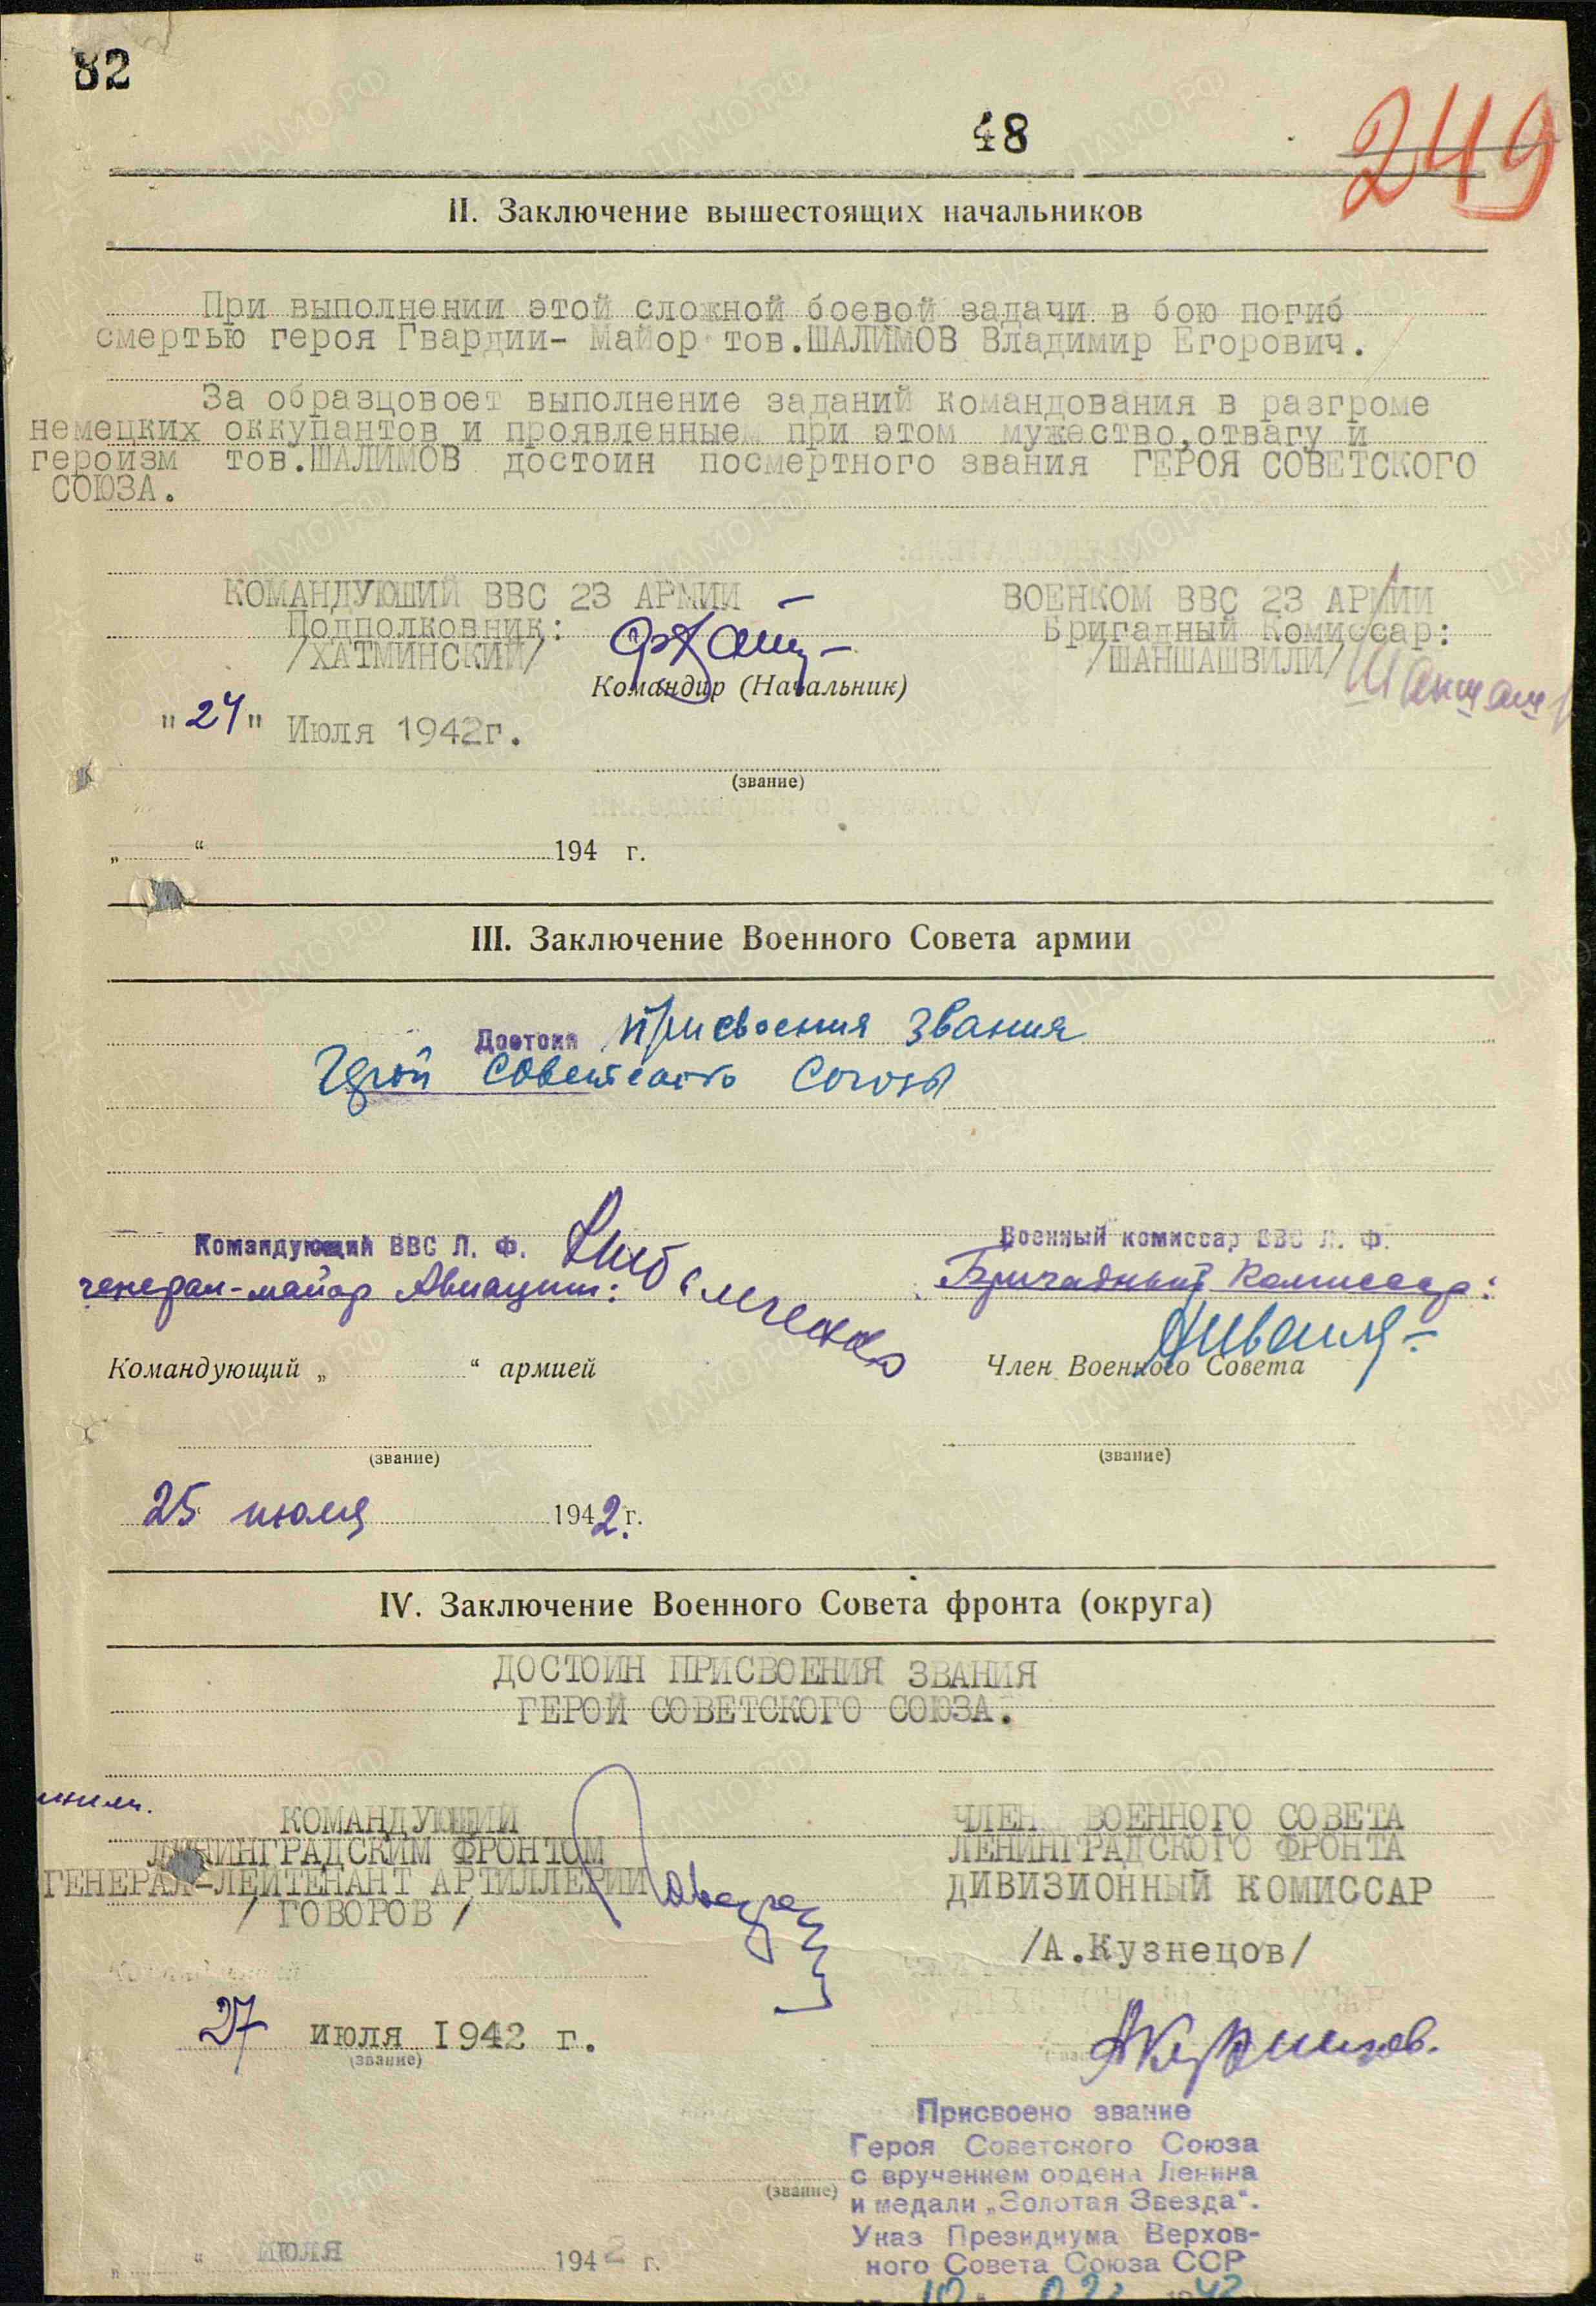 82
48
249
II. Заключение вышестоящих начальников
При выполнении этой сложной боевой задачи в бою погиб
смертью героя Гвардии- Майор тов.ШАЛИМОВ Владимир Егорович.
За образцовоет выполнение заданий командования в разгроме
немецких оккупантов и проявленные при этом мужество,отвагу и
героизм тов.ШАЛИМОВ достоин посмертного звания ГЕРОЯ СОВЕТСКОГО
СОЮЗА.
КОМАНДУЮШИЙ ВВС 23 АРМИИ
Подполковник:
/ХАТМИНСКИЙ/
ВОЕНКОМ ВВС 23 АРМИИ
Бригадный Комиссар:
/ШАНШАШВИЛИ/
Командир (Начальник)
"24" Июля 1942г.
(звание)
„ “ 194 г.
III. Заключение Военного Совета армии
Достоин присвоения звания
Герой Советского Союза
Командующий ВВС Л. Ф.
генерал-майор Авиации:
Военный комиссар ВВС Л. Ф.
Бригадный Комиссар:
Командующий „ “ армией
Член Военного Совета
(звание)
(звание)
25 июля 1942 г.
IV. Заключение Военного Совета фронта (округа)
ДОСТОИН ПРИСВОЕНИЯ ЗВАНИЯ
ГЕРОЙ СОВЕТСКОГО СОЮЗА.
КОМАНДУЮЩИЙ
ЛЕНИНГРАДСКИМ ФРОНТОМ
ГЕНЕРАЛ-ЛЕЙТЕНАНТ АРТИЛЛЕРИИ
/ ГОВОРОВ /
Говоров
ЧЛЕН ВОЕННОГО СОВЕТА
ЛЕНИНГРАДСКОГО ФРОНТА
ДИВИЗИОННЫЙ КОМИССАР
/А.Кузнецов/
27 июля 1942 г.
(звание)
АКузнецов.
Присвоено звание
Героя Советского Союза
с вручением ордена Ленина
и медали „Золотая Звезда“.
Указ Президиума Верхов-
ного Совета Союза ССР
(звание)
„ “ июля 1942 г.